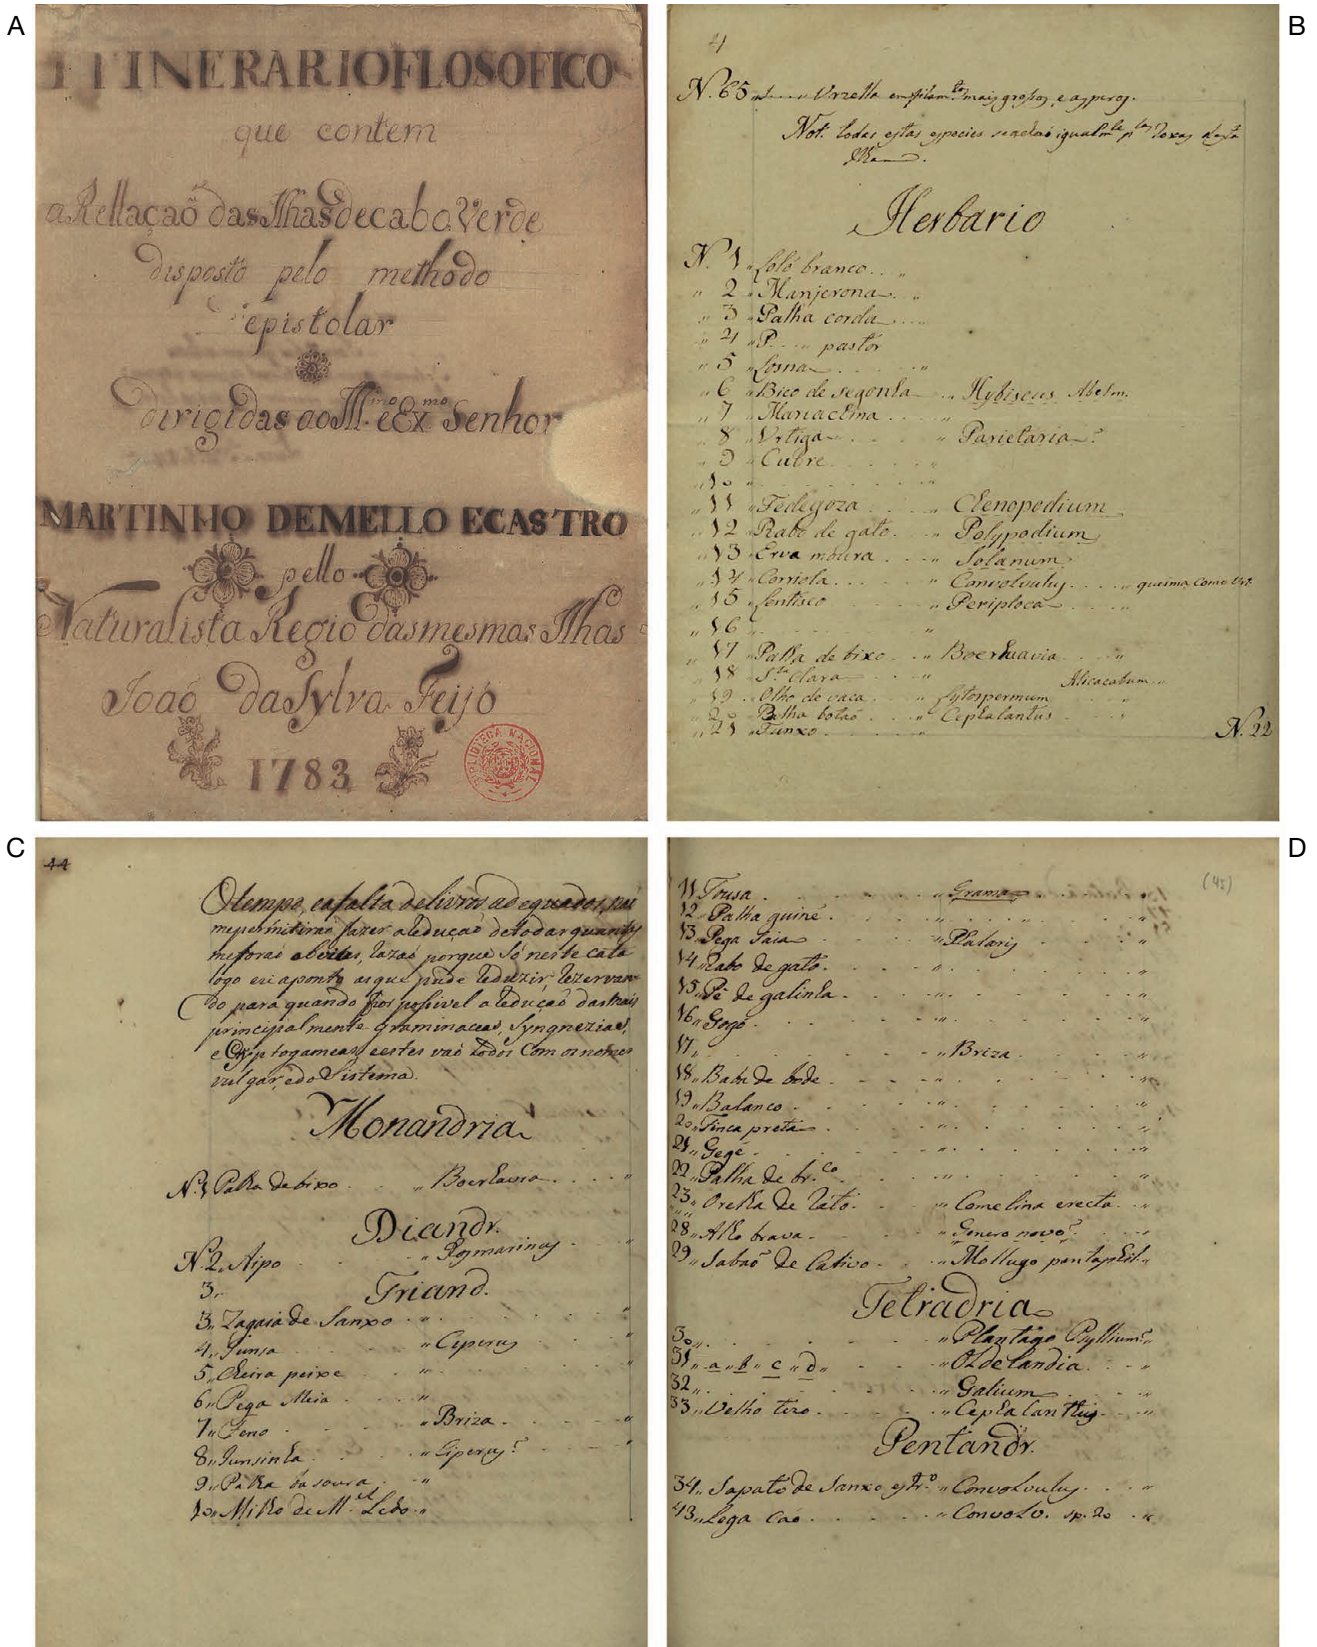 A
ITINERARIOFLOSOFICO
que contem
a Rellaçaõ das Ilhas de cabo Verde
disposto pelo methodo
epistolar
dirigidas ao Ill.mo e Ex.mo Senhor
MARTINHO DEMELLO ECASTRO
pello
Naturalista Regio das mesmas Ilhas
Joaõ da Sylva Feijó
1783
BIBLIOTECA NACIONAL
B
4
N. 65 Urzella em filam.tos mais grossos, e asperos.
Not. todas estas especies se achaõ igualm.te p.las Roxas desta
Ilha.
Herbario
N. 1 Loló branco
2 Manjerona
3 Palha corda
4 P. pastor
5 Losna
6 Bico de segonha Hybiscus Abelm.
7 Mariaclina
8 Urtiga Parietaria?
9 Cubre
10
11 Fedegoza Chenopodium
12 Rabo de gato Polypodium
13 Erva moura Solanum
14 Corriola Convolvulus queima como Urt.
15 Lentisco Periploca
16
17 Palha de bixo Boerhavia
18 S.ta Clara Alicacabum
19 Olho de vaca Lytospermum
20 Palha botaõ Cephalantus
21 Funxo
N. 22
C
44
O tempo, e a falta de livros adequados, naõ
me permitiraõ fazer a reduçaõ de todas quantas
me foraõ a razaõ porque só neste cata
logo eu aponto as que pude reduzir, rezervan
do para quando for possivel a reduçaõ das mais
principalmente graminaceas, Syngnezias,
e Cryptogameas, e estes vaõ todos com os nomes
vulgar, e do Sistema.
Monandria
N. 1 Palha de bixo Boerhavia
Diandr.
N. 2 Aipo Rosmarinus
3
Triand.
3 Zagaia de Sanxo
4 Junsa Ciperus
5 Cheira peixe
6 Pega Meia
7 Feno Briza
8 Junsinha Ciperus?
9 Palha basoura
10 Milho de M.el Lobo
D
(45)
11 Tousa Grama
12 Palha guiné
13 Pega Saia Phalaris
14 Rabo de gato
15 Pé de galinha
16 Gogó
17 Briza
18 Barba de bode
19 Balanco
20 Finca preta
21 Gegé
22 Palha de br.co
23 Orelha de rato Comelina erecta
28 Alho bravo Genero novo?
29 Sabaõ de Cativo Mollugo pentaphil.
Tetradria
30 Plantago Psyllium?
31 a b c d Oldelandia
32 Galium
33 Velho tezo Cephalanthus
Pentandr.
34 Sapato de Sanxo estr.o Convolvulus
43 Lega Caõ Convolv. sp. 20